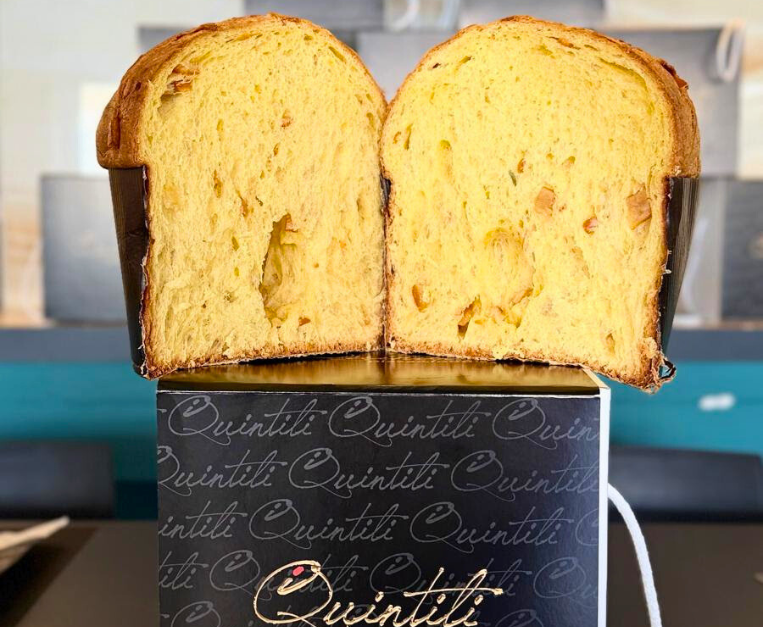 Quintili Quintili Quin
Quintili Quintili Quintili
intili Quintili Quintili
tili Quintili Quintili
Quintili